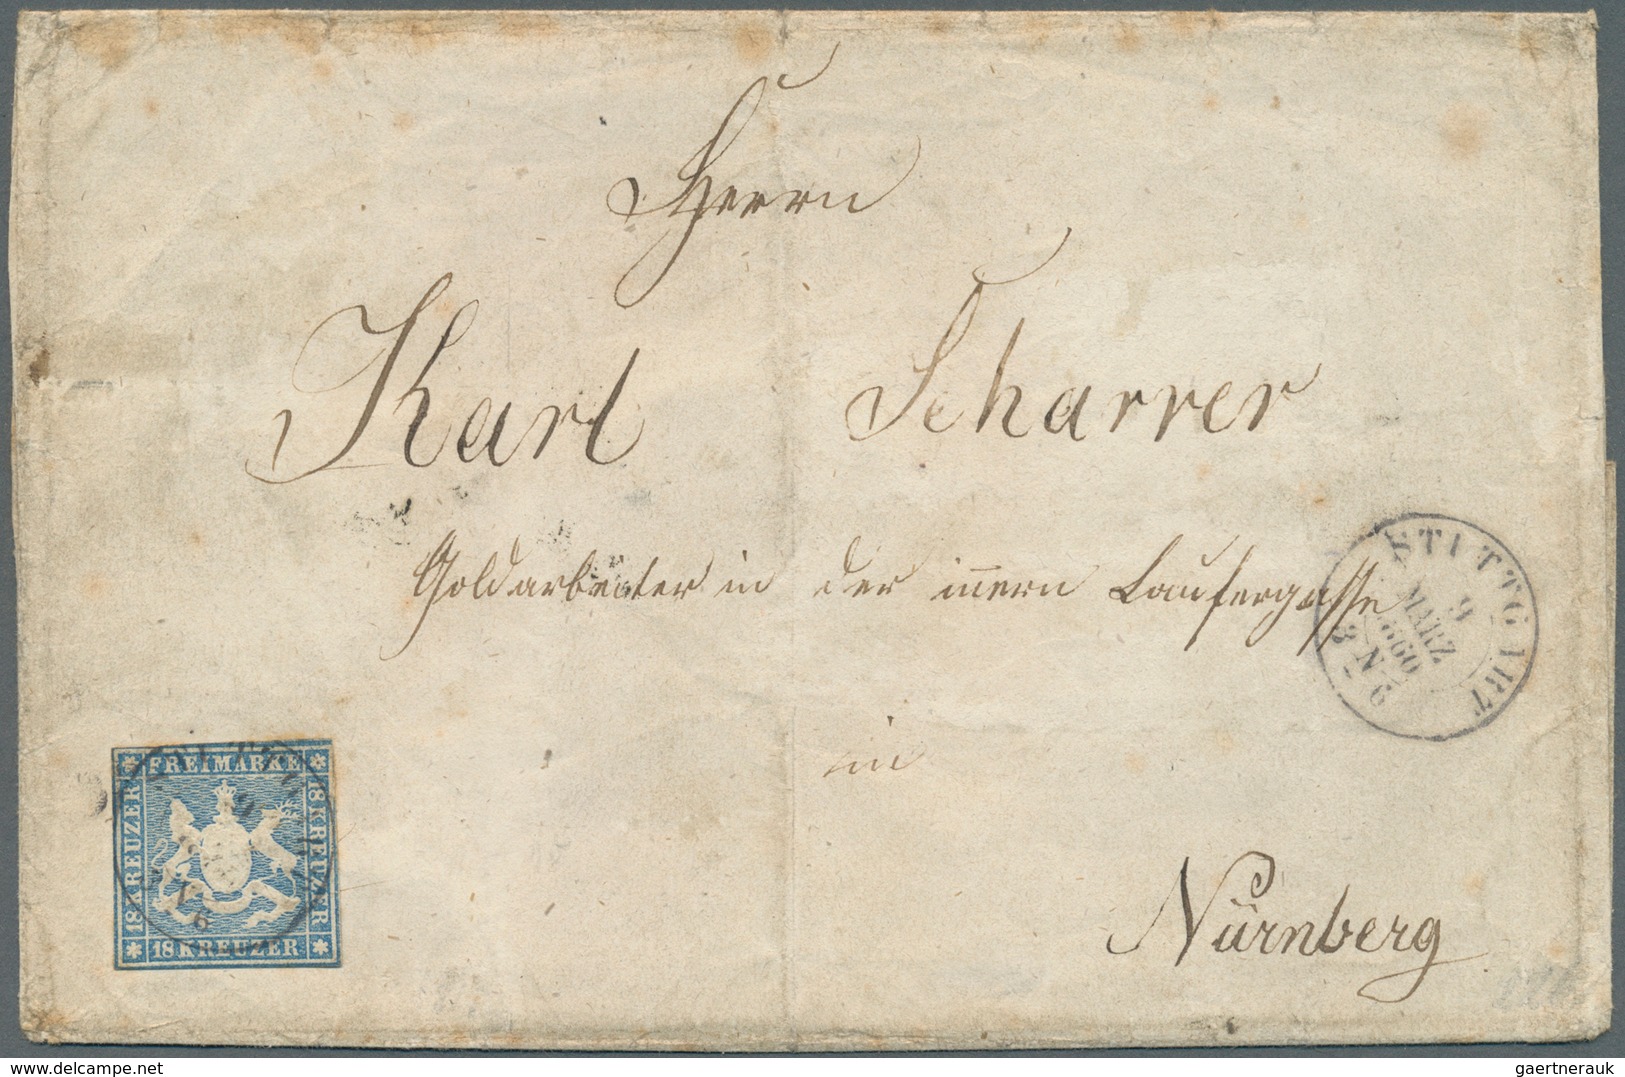 Herrn
Karl Scharrer
Goldarbeiter in der innern Laufergasse
in
Nürnberg
STUTTGART
9
MÄRZ
1860
N 6
FREIMARKE
18 KREUZER
18 KREUZER
18 KREUZER
9
N 6
www.delcampe.net
gaertnerauk